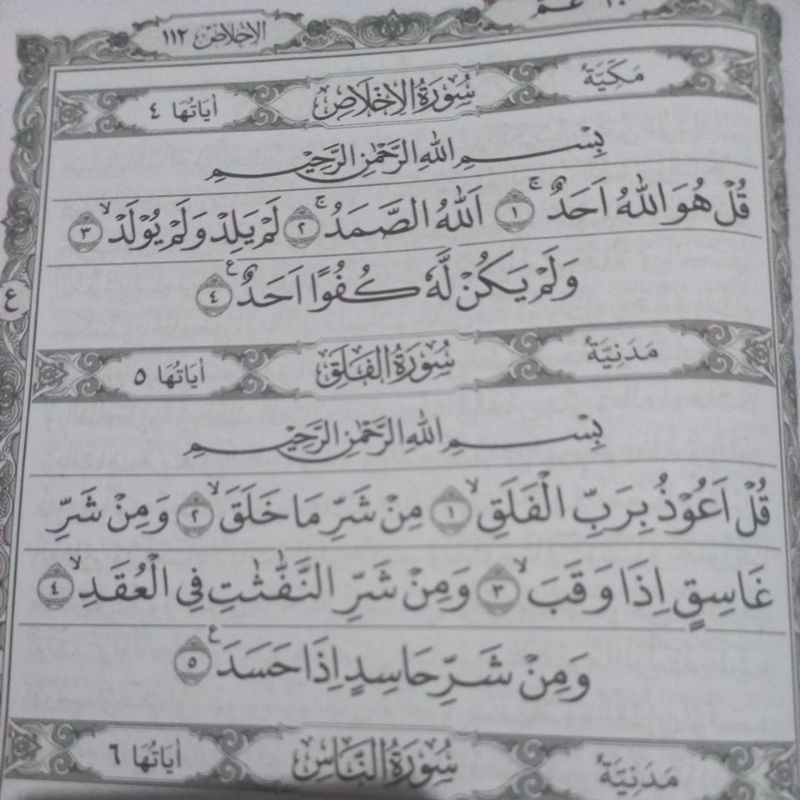 عم الاخلاص ١١٢
مكية سورة الإخلاص آياتها ٤
بِسْمِ اللهِ الرَّحْمٰنِ الرَّحِيْمِ
قُلْ هُوَ اللهُ اَحَدٌ ۚ ١ اَللهُ الصَّمَدُ ۚ ٢ لَمْ يَلِدْ وَلَمْ يُوْلَدْ ۙ ٣
وَلَمْ يَكُنْ لَّهٗ كُفُوًا اَحَدٌ ࣖ ٤
ع
مدنية سورة الفلق آياتها ٥
بِسْمِ اللهِ الرَّحْمٰنِ الرَّحِيْمِ
قُلْ اَعُوْذُ بِرَبِّ الْفَلَقِ ۙ ١ مِنْ شَرِّ مَا خَلَقَ ۙ ٢ وَمِنْ شَرِّ
غَاسِقٍ اِذَا وَقَبَ ۙ ٣ وَمِنْ شَرِّ النَّفّٰثٰتِ فِى الْعُقَدِ ۙ ٤
وَمِنْ شَرِّ حَاسِدٍ اِذَا حَسَدَ ࣖ ٥
مدنية سورة الناس آياتها ٦